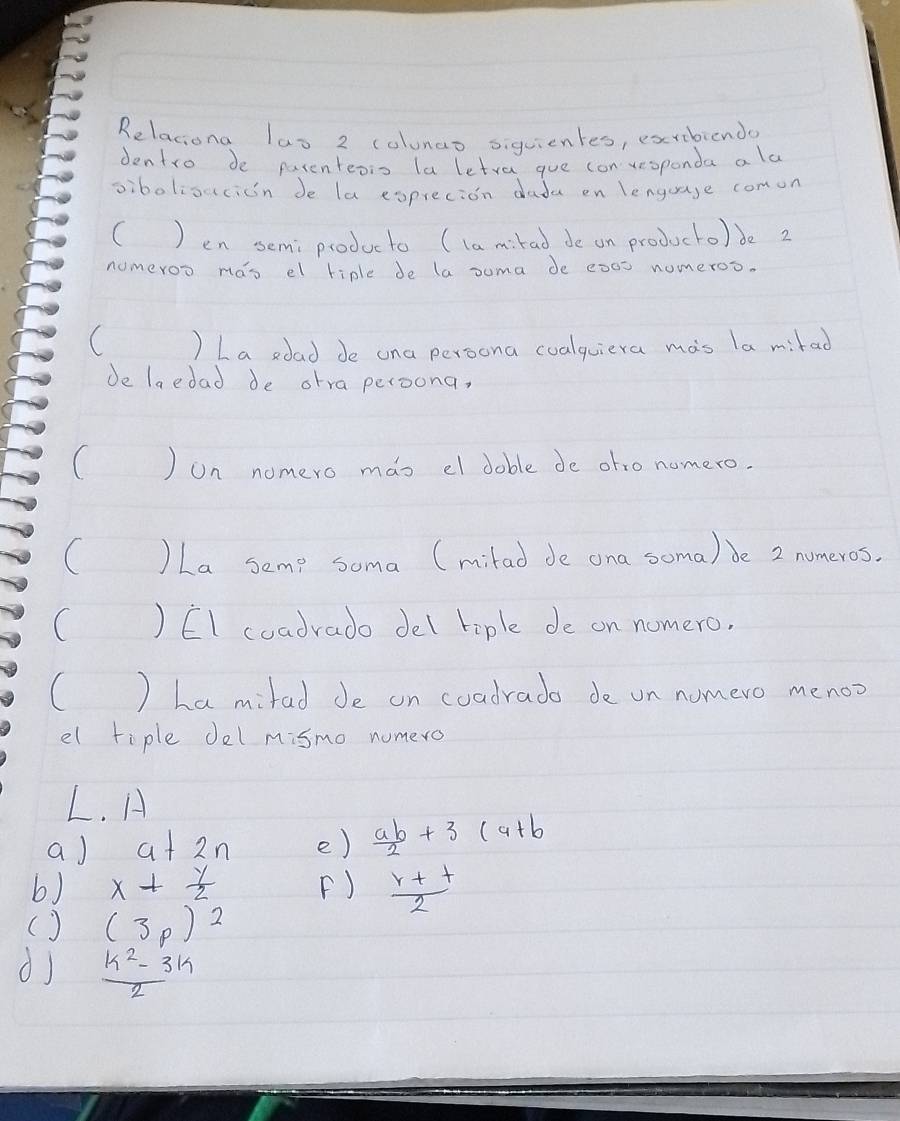 Relaciona las 2 colunas siguientes, escribiendo
dentro de parentesis la letra que corresponda a la
sibolisación de la espreción dada en lenguaje comun
( ) en semi producto (la mitad de un producto) de 2
numeros más el tiple de la suma de esos numeros.
( ) La edad de una persona cualquiera más la mitad
de la edad de otra persona,
( ) un numero más el doble de otro numero.
( ) La semi suma (mitad de una suma) de 2 numeros.
( ) El cuadrado del tiple de un numero.
( ) La mitad de un cuadrado de un numero menos
el tiple del mismo numero
L. A
a) a+2n e) ab/2 + 3 (a+b
b) x + y/2 F) r+t/2
c) (3p)²
d) k²-3k/2